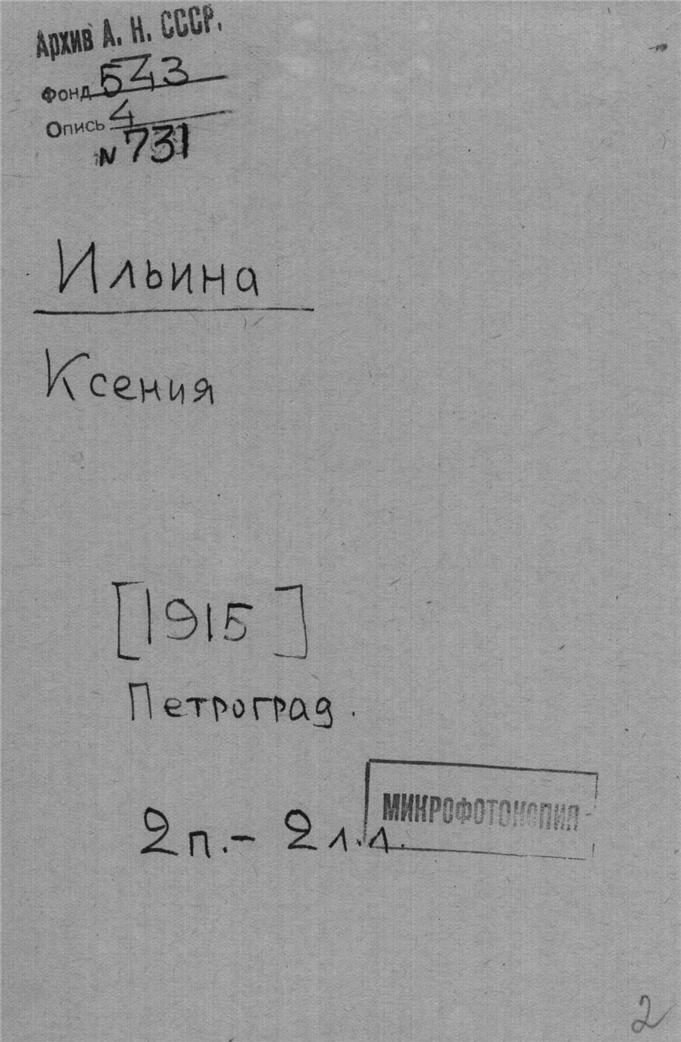 Архив А. Н. СССР.
Фонд 543
Опись 4
№ 731
Ильина
Ксения
[1915]
Петроград.
2 п. – 2 л.л.
МИКРОФОТОКОПИЯ
2